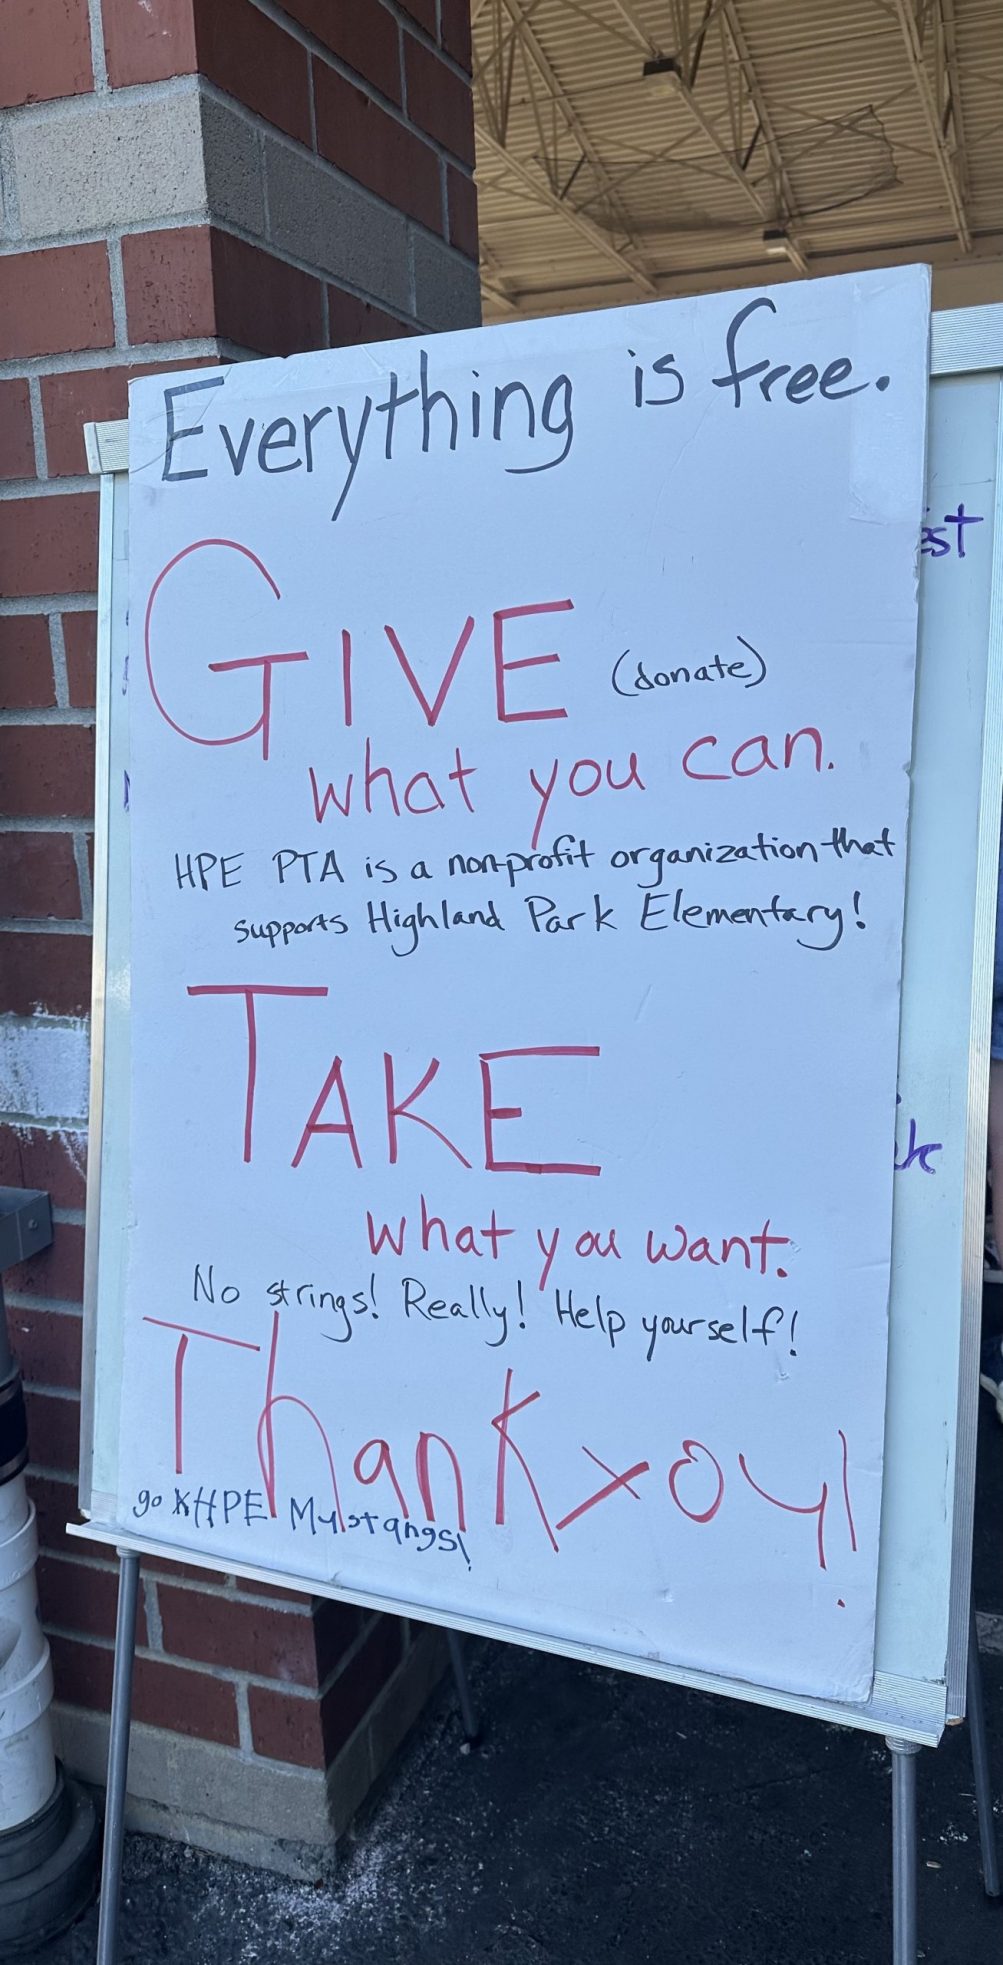 Everything is free.
GIVE (donate)
what you can.
HPE PTA is a non-profit organization that
supports Highland Park Elementary!
TAKE
what you want.
No strings! Really! Help yourself!
Thank you!
go HPE Mustangs!